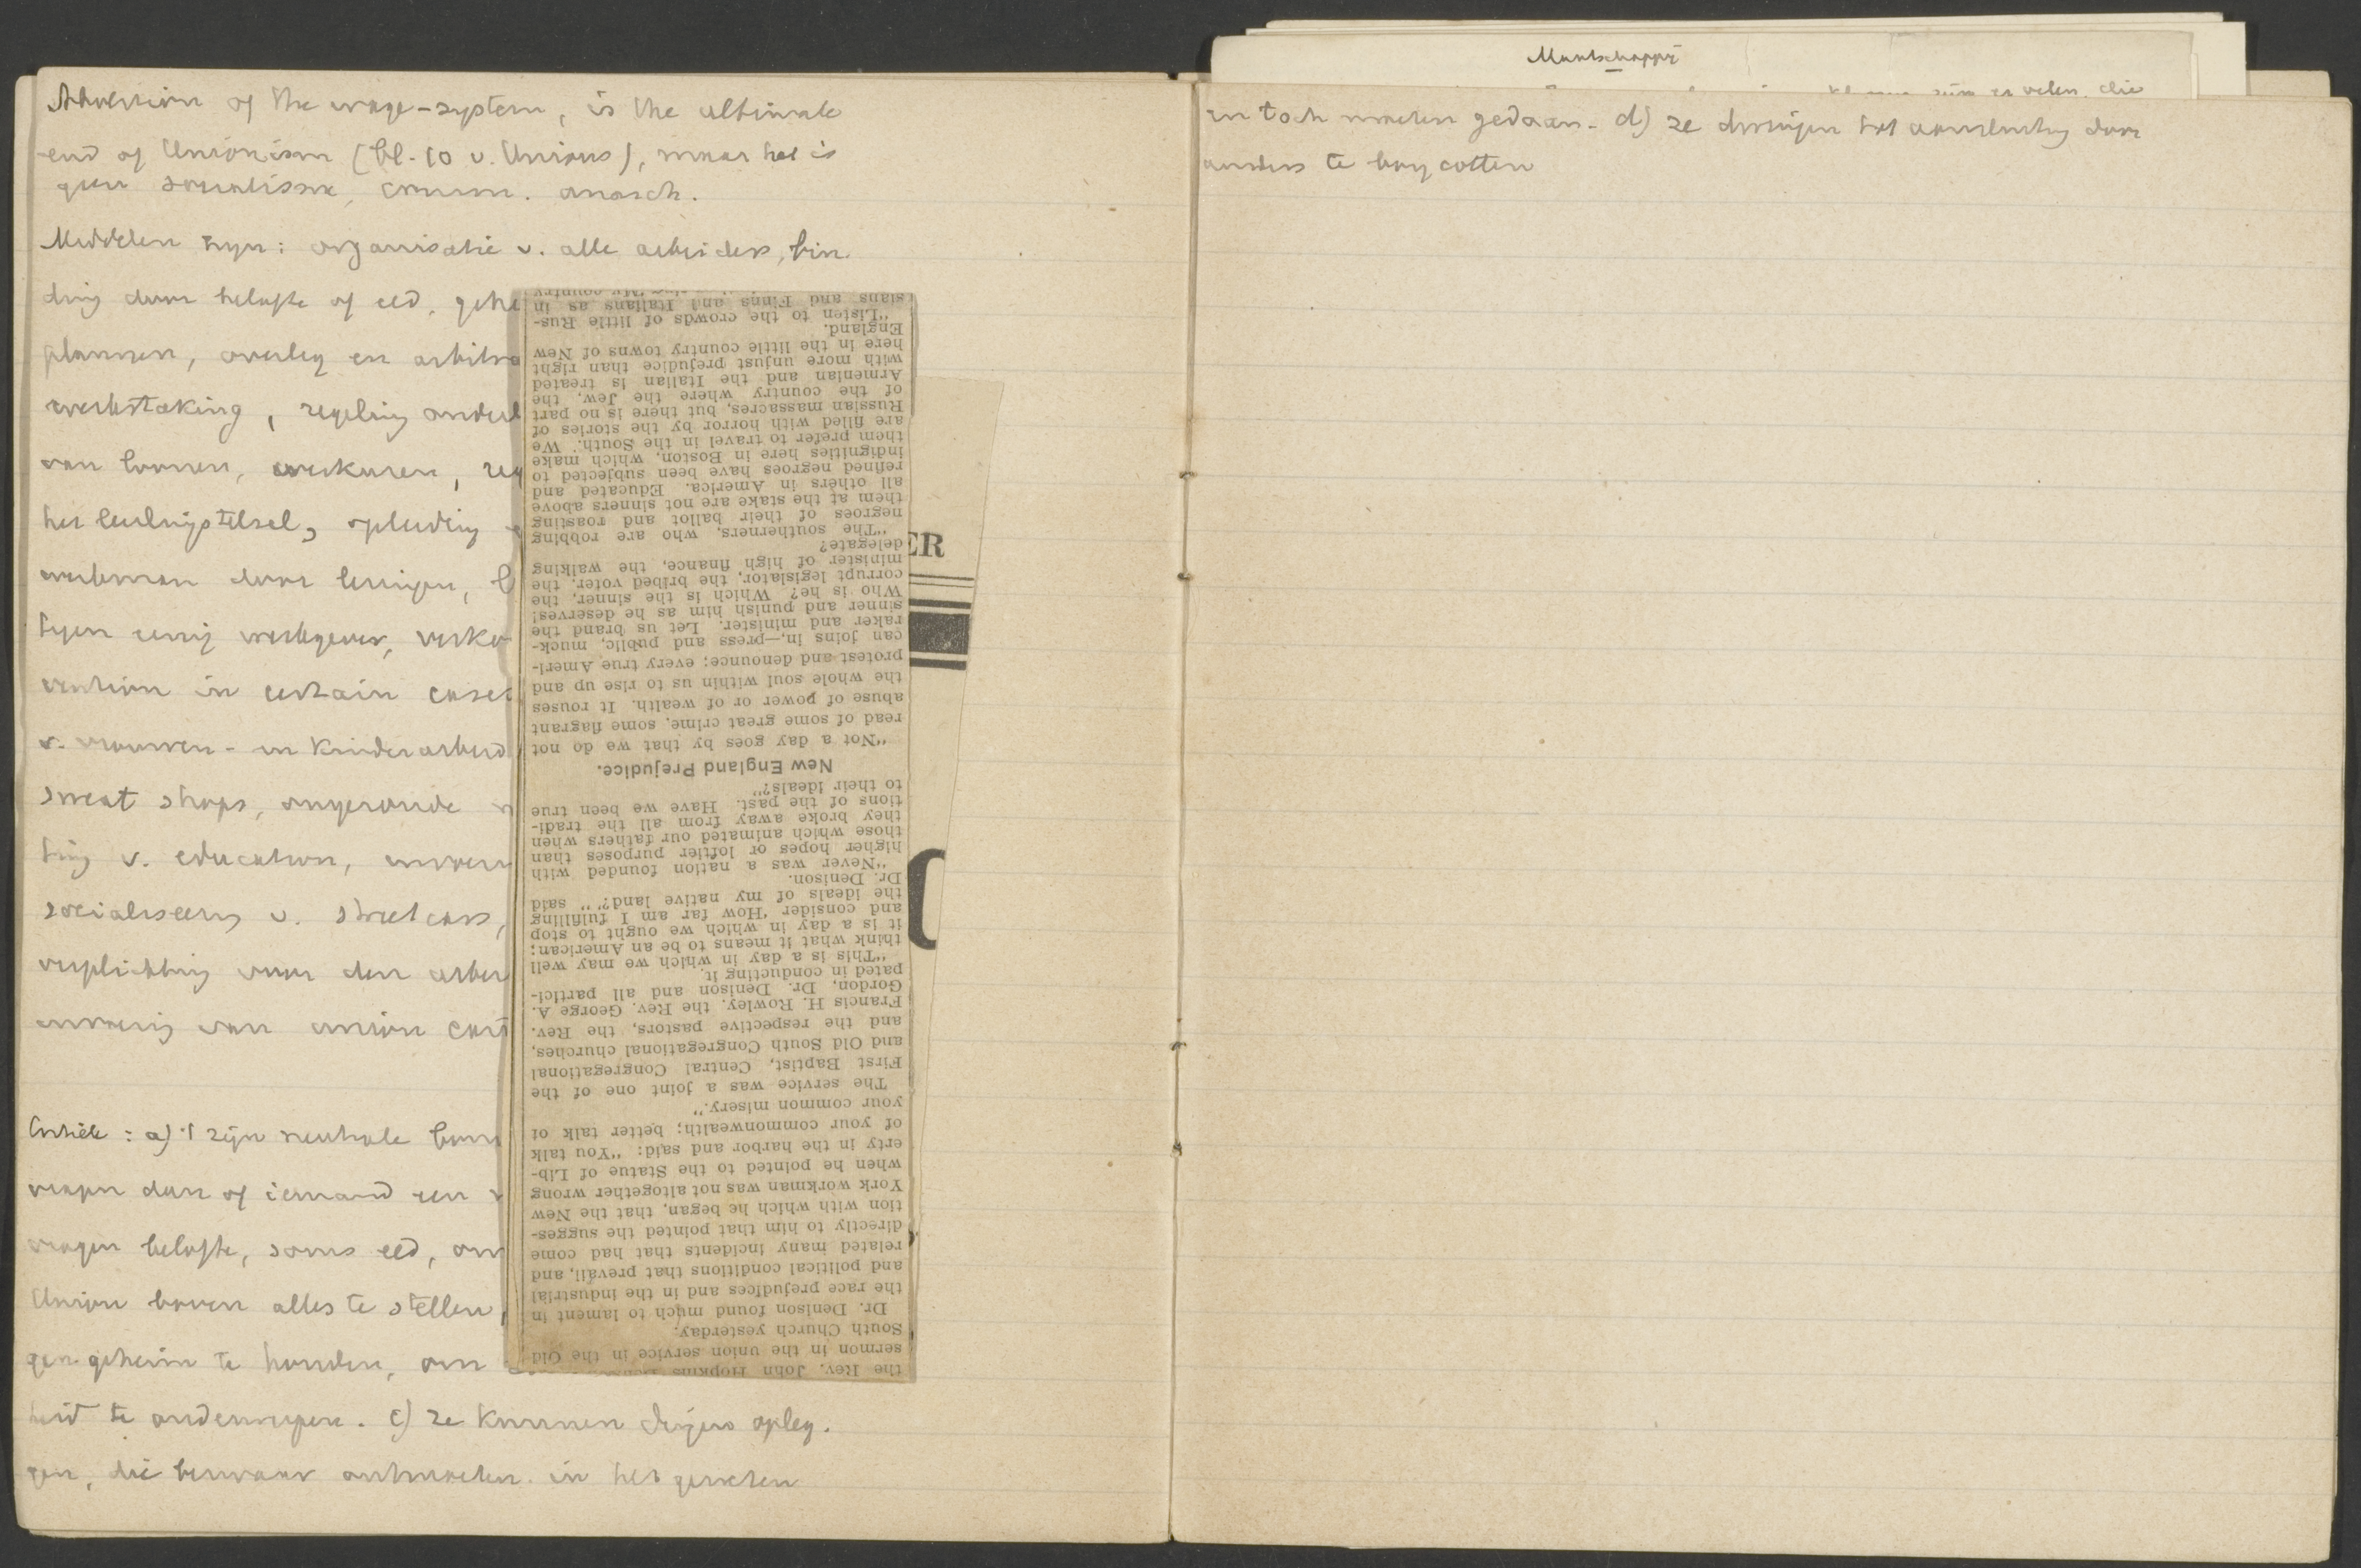 of the wage-system, is the ultimate
end of Unionism (bl. 10 v. Unions), maar het is
geen socialisme, comm. anarch.
Middelen zijn: organisatie v. alle arbeiders, bin-
ding door belofte of eed, gehe
plannen, overleg en arbitra
werkstaking, regeling onderl
van loonen, werkuren, reg
het leerlingstelsel, opleiding
werkman door lezingen,
eenig werkgever,
in certain cases
v. vrouwen- en kinderarbeid
sweat shops, ongezonde
ting v. education, invoer
socialiseering v. street cars,
verplichting voor den arbei
invoering van union
a) 't zijn neutrale
vragen dan of iemand een
vragen belofte, soms eed, om
Union boven alles te stellen,
gen geheim te houden, om
heid te onderwerpen. c) ze kunnen dingen opleg-
gen, die bezwaar ontmoeten in het geweten
the Rev. John Hopkins
sermon in the union service in the Old
South Church yesterday.
Dr. Denison found much to lament in
the race prejudices and in the industrial
and political conditions that prevail, and
related many incidents that had come
directly to him that pointed the sugges-
tion with which he began, that the New
York workman was not altogether wrong
when he pointed to the Statue of Lib-
erty in the harbor and said: "You talk
of your commonwealth; better talk of
your common misery."
The service was a joint one of the
First Baptist, Central Congregational
and Old South Congregational churches,
and the respective pastors, the Rev.
Francis H. Rowley, the Rev. George A.
Gordon, Dr. Denison and all partici-
pated in conducting it.
"This is a day in which we may well
think what it means to be an American;
it is a day in which we ought to stop
and consider 'How far am I fulfilling
the ideals of my native land?'" said
Dr. Denison.
"Never was a nation founded with
higher hopes or loftier purposes than
those which animated our fathers when
they broke away from all the tradi-
tions of the past. Have we been true
to their ideals?"
New England Prejudice.
"Not a day goes by that we do not
read of some great crime, some flagrant
abuse of power or of wealth. It rouses
the whole soul within us to rise up and
protest and denounce; every true Ameri-
can joins in,—press and public, muck-
raker and minister. Let us brand the
sinner and punish him as he deserves!
Who is he? Which is the sinner, the
corrupt legislator, the bribed voter, the
minister of high finance, the walking
delegate?
"The southerners, who are robbing
negroes of their ballot and roasting
them at the stake are not sinners above
all others in America. Educated and
refined negroes have been subjected to
indignities here in Boston, which make
them prefer to travel in the South. We
are filled with horror by the stories of
Russian massacres, but there is no part
of the country where the Jew, the
Armenian and the Italian is treated
with more unjust prejudice than right
here in the little country towns of New
England.
"Listen to the crowds of little Rus-
sians and Finns and Italians as in
'My country
ER
Maatschappij
zijn er velen, die
en toch moeten gedaan. d) ze dwingen tot aansluiting door
anders te boycotten